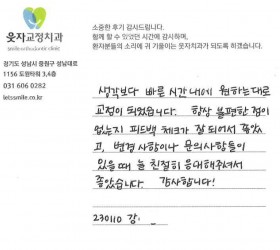 웃자교정치과
smile orthodontic clinic
경기도 성남시 중원구 성남대로
1156 도원타워 3,4층
031 606 0282
letssmile.co.kr
소중한 후기 감사드립니다.
함께 할 수 있었던 시간에 감사하며,
환자분들의 소리에 귀 기울이는 웃자치과가 되도록 하겠습니다.
생각보다 빠른 시간 내에 원하는대로
교정이 되었습니다. 항상 불편한 점이
없는지 피드백 체크가 잘 되어서 좋았
고, 변경사항이나 문의사항들이
있을때 늘 친절히 응대해주셔서
좋았습니다. 감사합니다!
230110 강